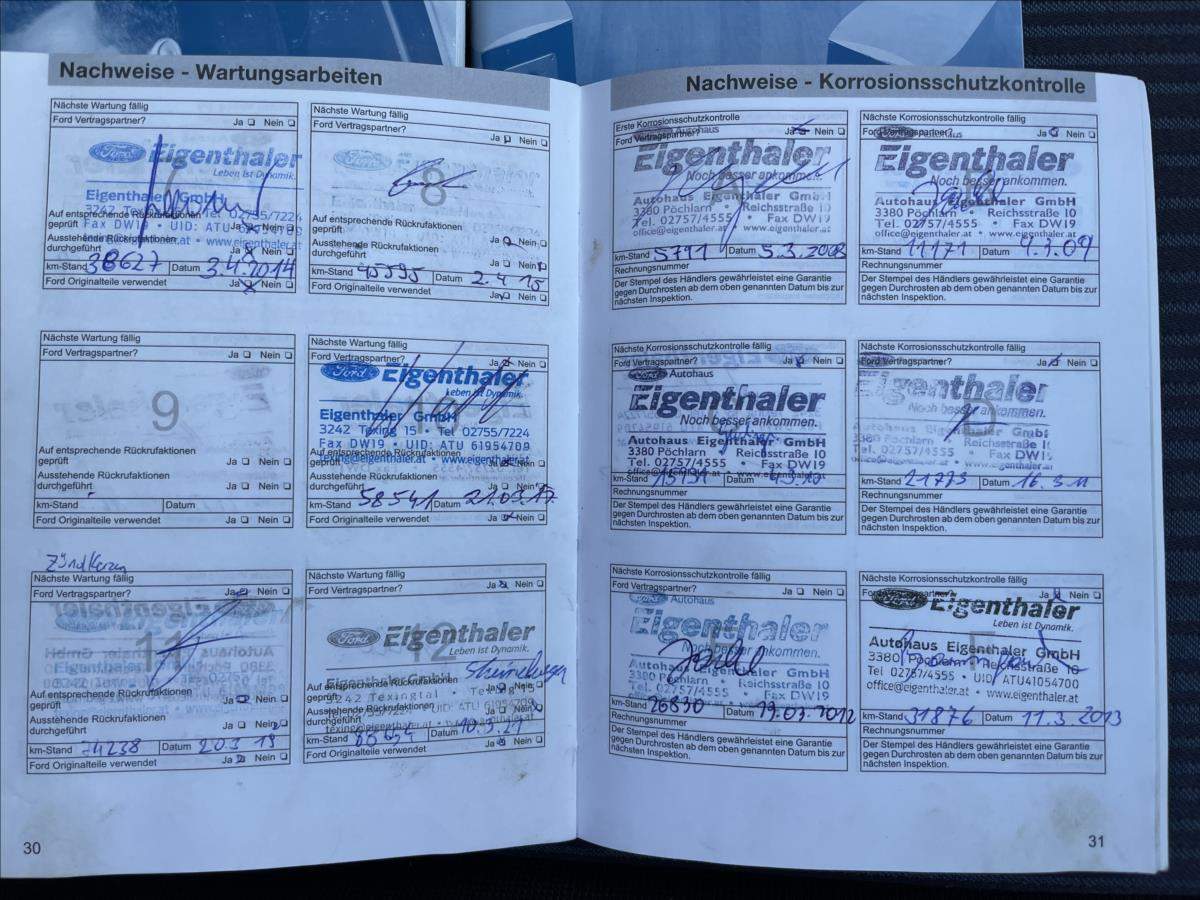 Nachweise - Wartungsarbeiten
Nächste Wartung fällig
Ford Vertragspartner? Ja Nein
Ford Eigenthaler
Leben ist Dynamik.
Eigenthaler GmbH
3242 Texing Tel 02755/7224
Auf entsprechende Rückrufaktionen
geprüft
Fax DW19 • UID: ATU
Ausstehende Rückrufaktionen
durchgeführt
• www.eigenthaler.at
km-Stand 38627 Datum 3.4.2014
Ford Originalteile verwendet Ja Nein
Nächste Wartung fällig
Ford Vertragspartner? Ja Nein
8
Auf entsprechende Rückrufaktionen
geprüft Ja Nein
Ausstehende Rückrufaktionen
durchgeführt Ja Nein
km-Stand 45595 Datum 2.4.15
Ford Originalteile verwendet Ja Nein
Nächste Wartung fällig
Ford Vertragspartner? Ja Nein
9
Auf entsprechende Rückrufaktionen
geprüft Ja Nein
Ausstehende Rückrufaktionen
durchgeführt Ja Nein
km-Stand Datum
Ford Originalteile verwendet Ja Nein
Nächste Wartung fällig
Ford Vertragspartner? Ja Nein
Ford Eigenthaler
Leben ist Dynamik.
Eigenthaler GmbH
3242 Texing 15 • Tel 02755/7224
Fax DW19 • UID: ATU 61954709
Auf entsprechende Rückrufaktionen
geprüft
texing@eigenthaler.at • www.eigenthaler.at
Ausstehende Rückrufaktionen
durchgeführt Ja Nein
km-Stand 58541 Datum 21.03.17
Ford Originalteile verwendet Ja Nein
Zündkerzen
Nächste Wartung fällig
Ford Vertragspartner? Ja Nein
11
Auf entsprechende Rückrufaktionen
geprüft Ja Nein
Ausstehende Rückrufaktionen
durchgeführt Ja Nein
km-Stand 74238 Datum 20.3.19
Ford Originalteile verwendet Ja Nein
Nächste Wartung fällig
Ford Vertragspartner? Ja Nein
12
Ford Eigenthaler
Leben ist Dynamik.
Auf entsprechende Rückrufaktionen
geprüft
3242 Texingtal
Ausstehende Rückrufaktionen
durchgeführt
km-Stand Datum 10.3.21
Ford Originalteile verwendet Ja Nein
30
Nachweise - Korrosionsschutzkontrolle
Erste Korrosionsschutzkontrolle
Ford Vertragspartner? Ja Nein
Autohaus
Eigenthaler
Noch besser ankommen.
Autohaus Eigenthaler GmbH
3380 Pöchlarn • Reichsstraße 10
Tel. 02757/4555 • Fax DW19
office@eigenthaler.at • www.eigenthaler.at
km-Stand 5791 Datum 5.3.2008
Rechnungsnummer
Der Stempel des Händlers gewährleistet eine Garantie
gegen Durchrosten ab dem oben genannten Datum bis zur
nächsten Inspektion.
Nächste Korrosionsschutzkontrolle fällig
Ford Vertragspartner? Ja Nein
Eigenthaler
Noch besser ankommen.
Autohaus Eigenthaler GmbH
3380 Pöchlarn • Reichsstraße 10
Tel. 02757/4555 • Fax DW19
office@eigenthaler.at • www.eigenthaler.at
km-Stand 11171 Datum 9.3.09
Rechnungsnummer
Der Stempel des Händlers gewährleistet eine Garantie
gegen Durchrosten ab dem oben genannten Datum bis zur
nächsten Inspektion.
Nächste Korrosionsschutzkontrolle fällig
Ford Vertragspartner? Ja Nein
Ford Autohaus
Eigenthaler
Noch besser ankommen.
Autohaus Eigenthaler GmbH
3380 Pöchlarn • Reichsstraße 10
Tel. 02757/4555 • Fax DW19
office@eigenthaler.at • www.eigenthaler.at
km-Stand Datum
Rechnungsnummer
Der Stempel des Händlers gewährleistet eine Garantie
gegen Durchrosten ab dem oben genannten Datum bis zur
nächsten Inspektion.
Nächste Korrosionsschutzkontrolle fällig
Ford Vertragspartner? Ja Nein
Eigenthaler
Noch besser ankommen.
Autohaus Eigenthaler GmbH
3380 Pöchlarn • Reichsstraße 10
Tel. 02757/4555 • Fax DW19
office@eigenthaler.at • www.eigenthaler.at
km-Stand 21773 Datum 16.3.11
Rechnungsnummer
Der Stempel des Händlers gewährleistet eine Garantie
gegen Durchrosten ab dem oben genannten Datum bis zur
nächsten Inspektion.
Nächste Korrosionsschutzkontrolle fällig
Ford Vertragspartner? Ja Nein
Ford Autohaus
Eigenthaler
Noch besser ankommen.
Autohaus Eigenthaler GmbH
3380 Pöchlarn • Reichsstraße 10
Tel. 02757/4555 • Fax DW19
office@eigenthaler.at • www.eigenthaler.at
km-Stand 26830 Datum 19.03.2012
Rechnungsnummer
Der Stempel des Händlers gewährleistet eine Garantie
gegen Durchrosten ab dem oben genannten Datum bis zur
nächsten Inspektion.
Nächste Korrosionsschutzkontrolle fällig
Ford Vertragspartner? Ja Nein
Ford Eigenthaler
Leben ist Dynamik.
Autohaus Eigenthaler GmbH
3380 Pöchlarn • Reichsstraße 10
Tel 02757/4555 • UID ATU41054700
office@eigenthaler.at • www.eigenthaler.at
km-Stand 31876 Datum 11.3.2013
Rechnungsnummer
Der Stempel des Händlers gewährleistet eine Garantie
gegen Durchrosten ab dem oben genannten Datum bis zur
nächsten Inspektion.
31